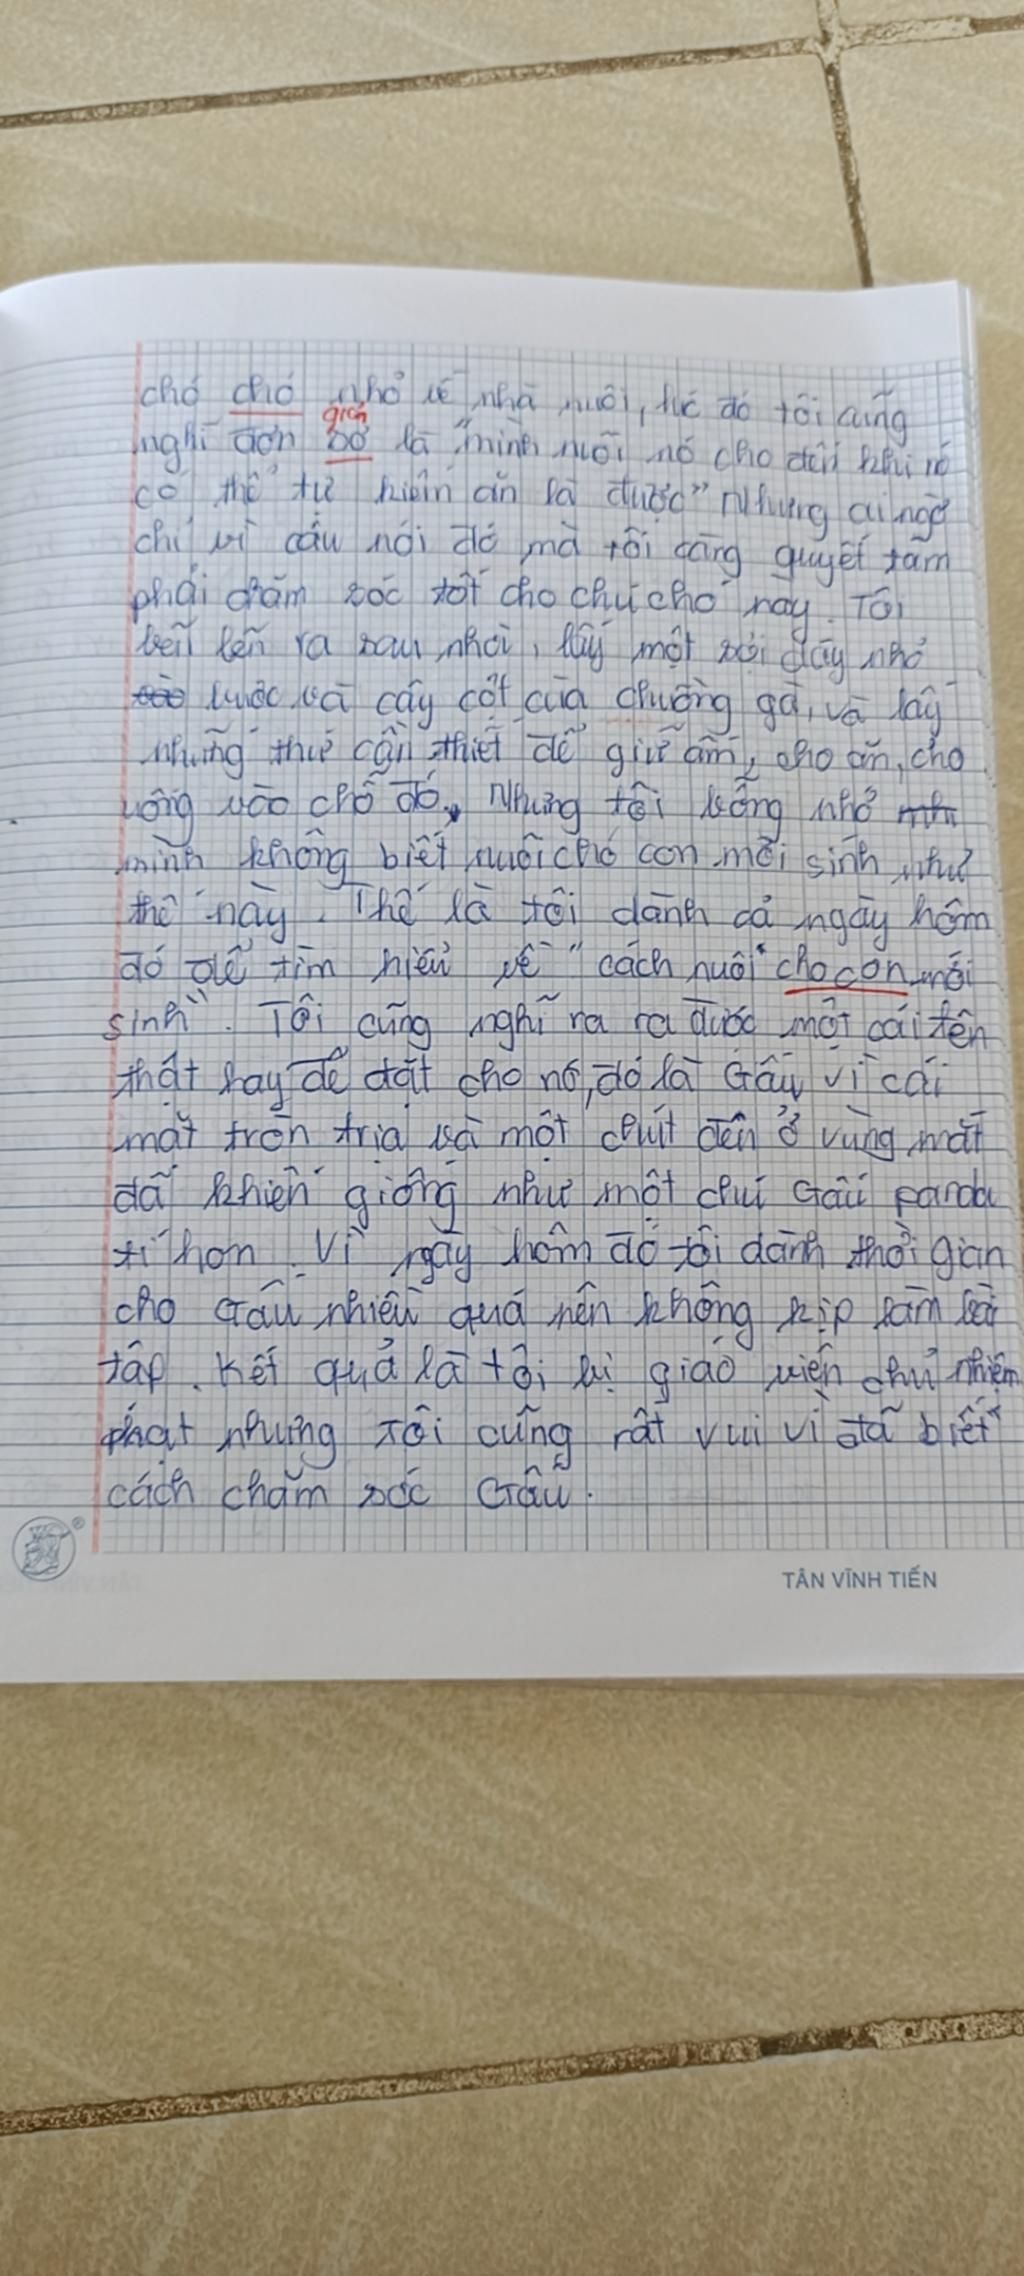 chó chó nhỏ về nhà nuôi, lúc đó tôi cũng
giản
nghĩ đơn sơ là "mình nuôi nó cho đến khi nó
có thể tự kiếm ăn là được" Nhưng ai ngờ
chỉ vì câu nói đó mà tôi càng quyết tâm
phải chăm sóc tốt cho chú chó này. Tôi
lẻn ra sau nhà, lấy một sợi dây nhỏ
buộc và cây cột của chuồng gà, và lấy
những thứ cần thiết để giữ ấm, cho ăn, cho
uống vào chỗ đó. Nhưng tôi bỗng nhớ
mình không biết nuôi chó con mới sinh như
thế này. Thế là tôi dành cả ngày hôm
đó để tìm hiểu về "cách nuôi cho con mới
sinh". Tôi cũng nghĩ ra ra được một cái tên
thật hay để đặt cho nó, đó là Gấu vì cái
mặt tròn trịa và một chút đen ở vùng mắt
đã khiến giống như một chú Gấu panda
tí hon. Vì ngày hôm đó tôi dành thời gian
cho Gấu nhiều quá nên không kịp làm bài
tập. Kết quả là tôi bị giáo viên chủ nhiệm
phạt nhưng tôi cũng rất vui vì đã biết
cách chăm sóc Gấu.
TÂN VĨNH TIẾN